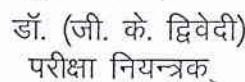 डॉ. (जी. के. द्विवेदी)
परीक्षा नियन्त्रक